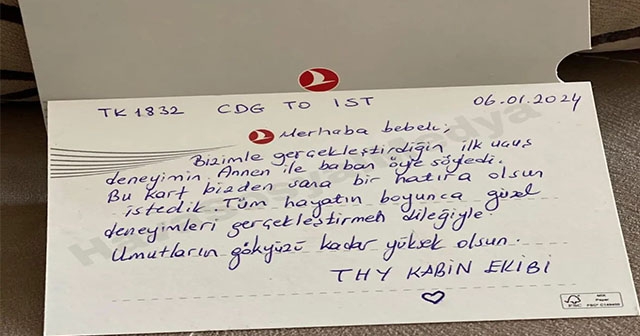 TK 1832 CDG TO IST 06.01.2024
Merhaba bebek;
Bizimle gerçekleştirdiğin ilk uçuş
deneyimin. Annen ile baban öyle söyledi.
Bu kart bizden sana bir hatıra olsun
istedik. Tüm hayatın boyunca güzel
deneyimleri gerçekleştirmen dileğiyle
Umutların gökyüzü kadar yüksek olsun.
THY KABİN EKİBİ
FSC
MIX
Paper